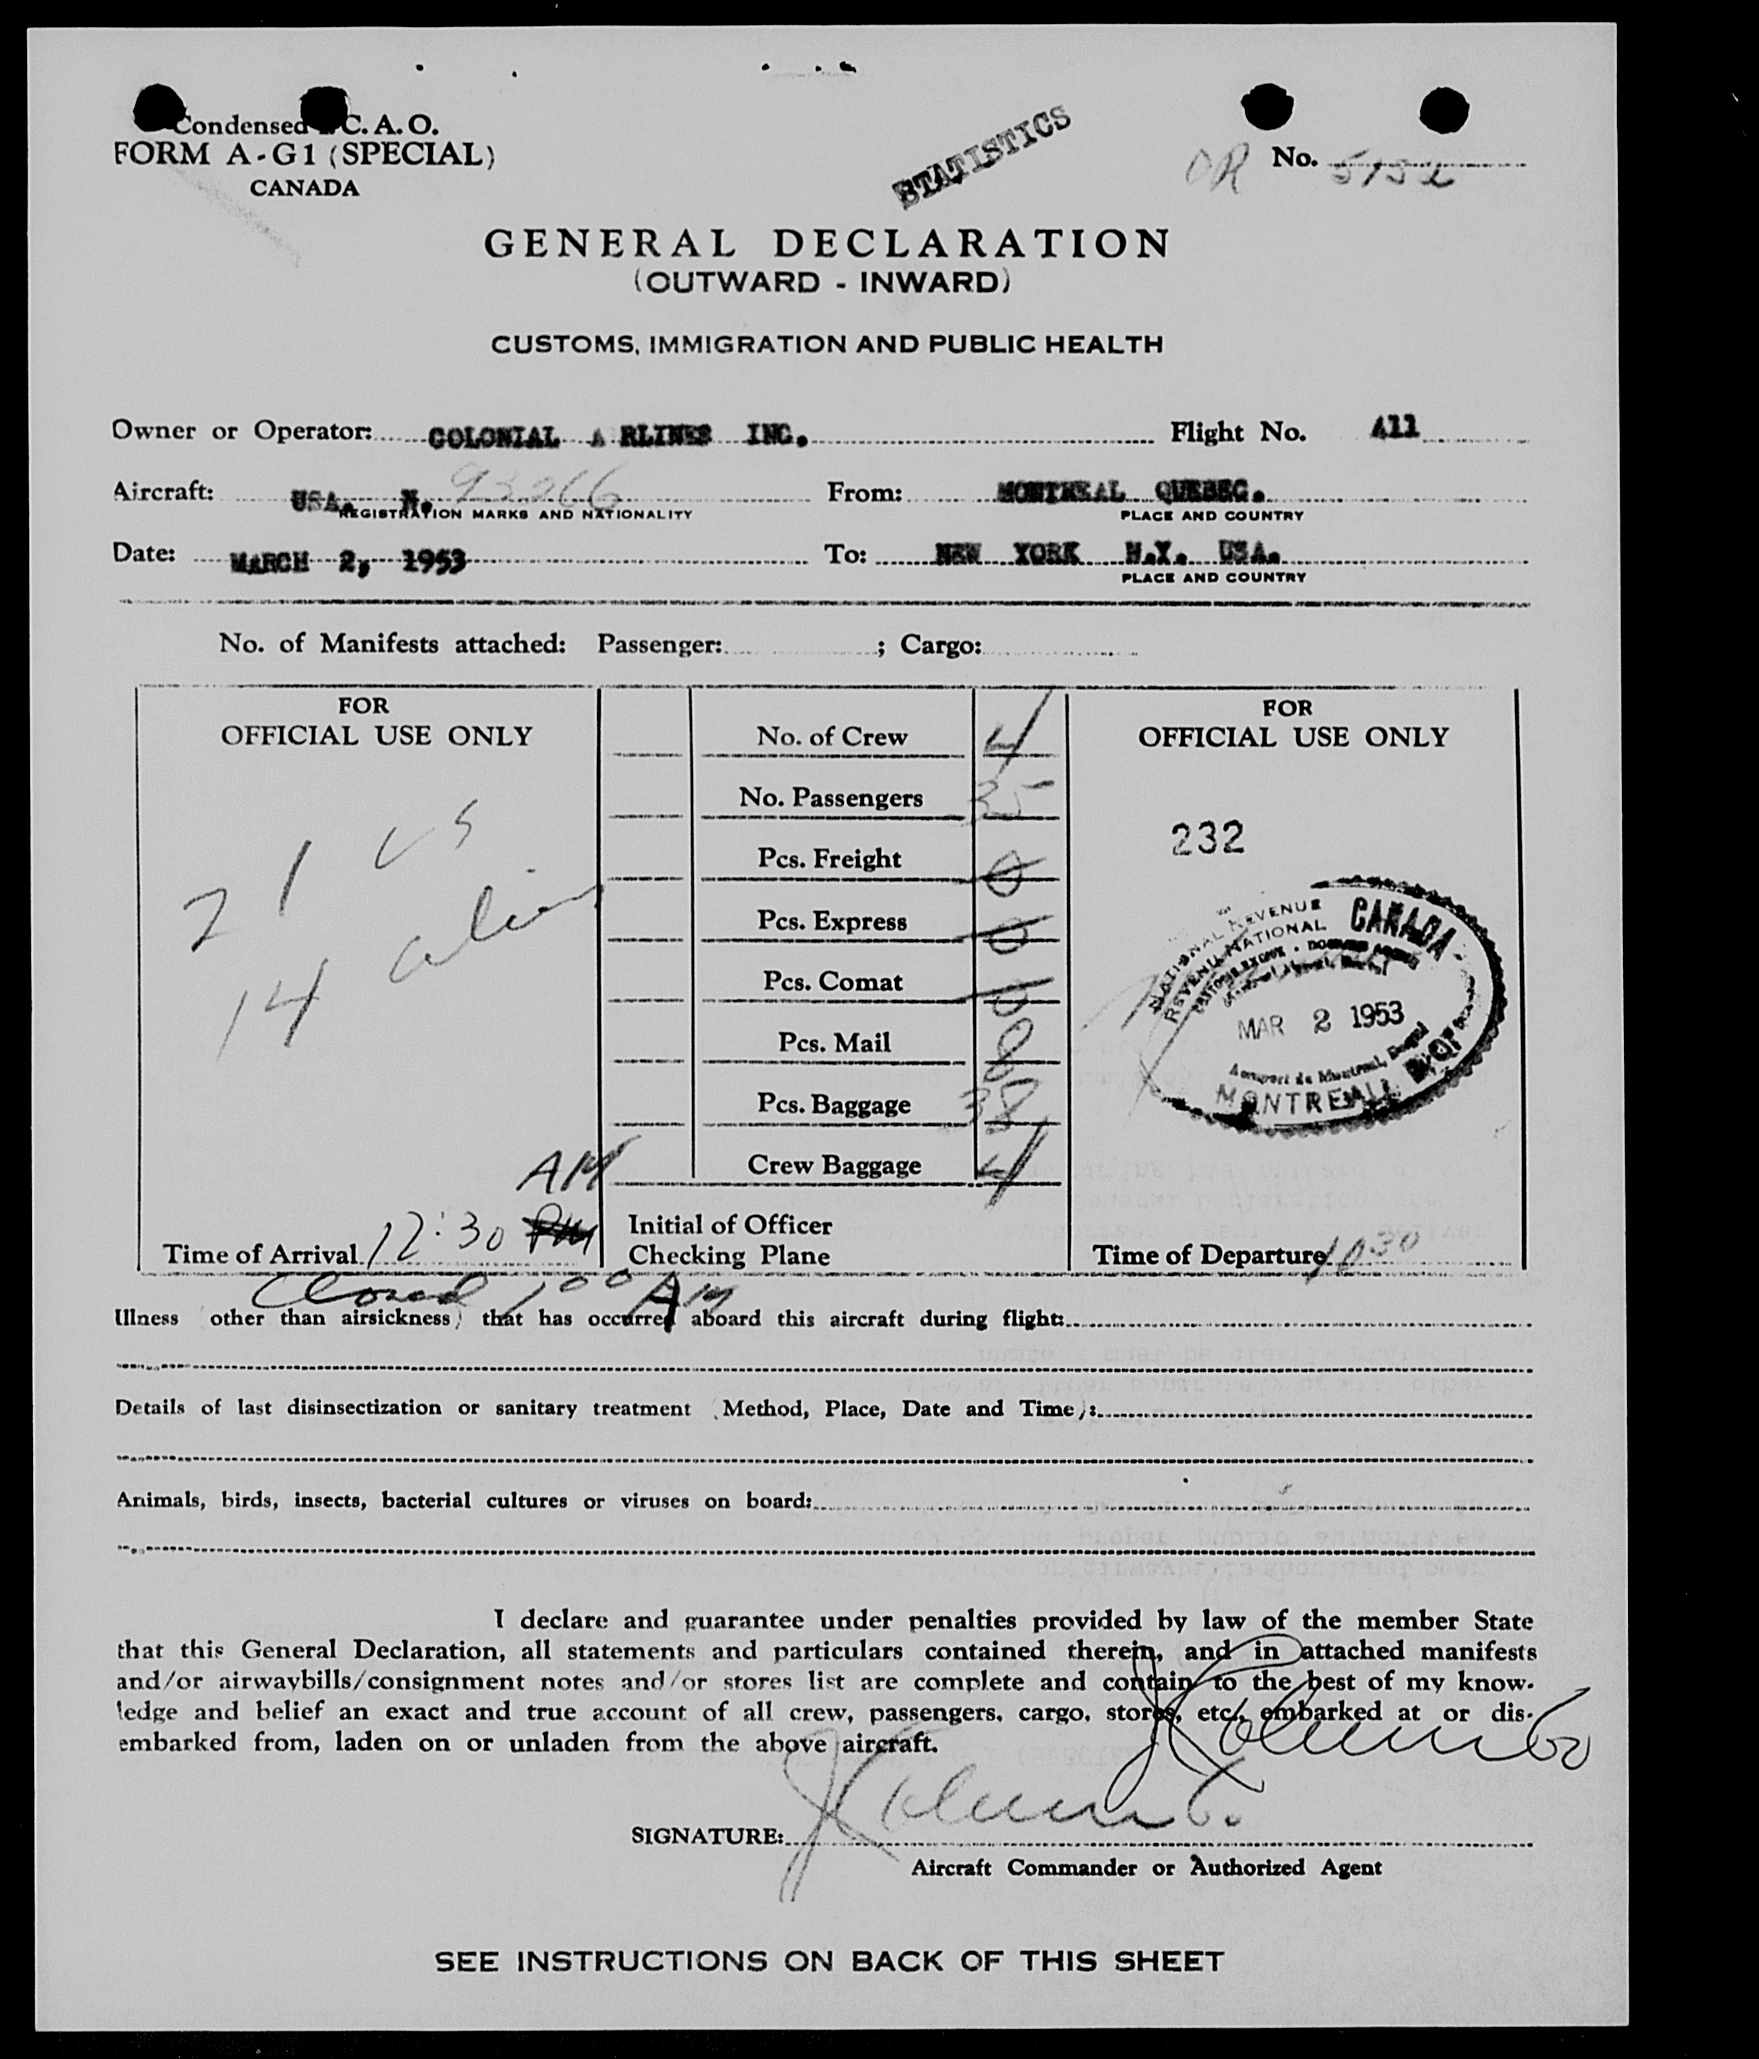 Condensed C. A. O.
FORM A-G1 (SPECIAL)
CANADA
STATISTICS
OR No. 5152
GENERAL DECLARATION
(OUTWARD - INWARD)
CUSTOMS, IMMIGRATION AND PUBLIC HEALTH
Owner or Operator: COLONIAL A RLINES INC. Flight No. A11
Aircraft: USA. N. 93266 From: MONTREAL QUEBEC.
REGISTRATION MARKS AND NATIONALITY PLACE AND COUNTRY
Date: MARCH 2, 1953 To: NEW YORK N.Y. USA.
PLACE AND COUNTRY
No. of Manifests attached: Passenger: ; Cargo:
FOR
OFFICIAL USE ONLY
21 US
14 alien
AM
Time of Arrival 12:30 PM
No. of Crew 4
No. Passengers 35
Pcs. Freight 0
Pcs. Express 0
Pcs. Comat 0
Pcs. Mail 8
Pcs. Baggage 38
Crew Baggage 4
Initial of Officer
Checking Plane
FOR
OFFICIAL USE ONLY
232
NATIONAL REVENUE CANADA
REVENU NATIONAL
MAR 2 1953
Aeroport de Montreal, Dorval
MONTREAL P.Q.
Time of Departure 1030
Closed 1 00 AM
Illness (other than airsickness) that has occurred aboard this aircraft during flight:
Details of last disinsectization or sanitary treatment (Method, Place, Date and Time):
Animals, birds, insects, bacterial cultures or viruses on board:
I declare and guarantee under penalties provided by law of the member State
that this General Declaration, all statements and particulars contained therein, and in attached manifests
and/or airwaybills/consignment notes and/or stores list are complete and contain to the best of my know-
ledge and belief an exact and true account of all crew, passengers, cargo, stores, etc., embarked at or dis-
embarked from, laden on or unladen from the above aircraft.
SIGNATURE:
Aircraft Commander or Authorized Agent
SEE INSTRUCTIONS ON BACK OF THIS SHEET